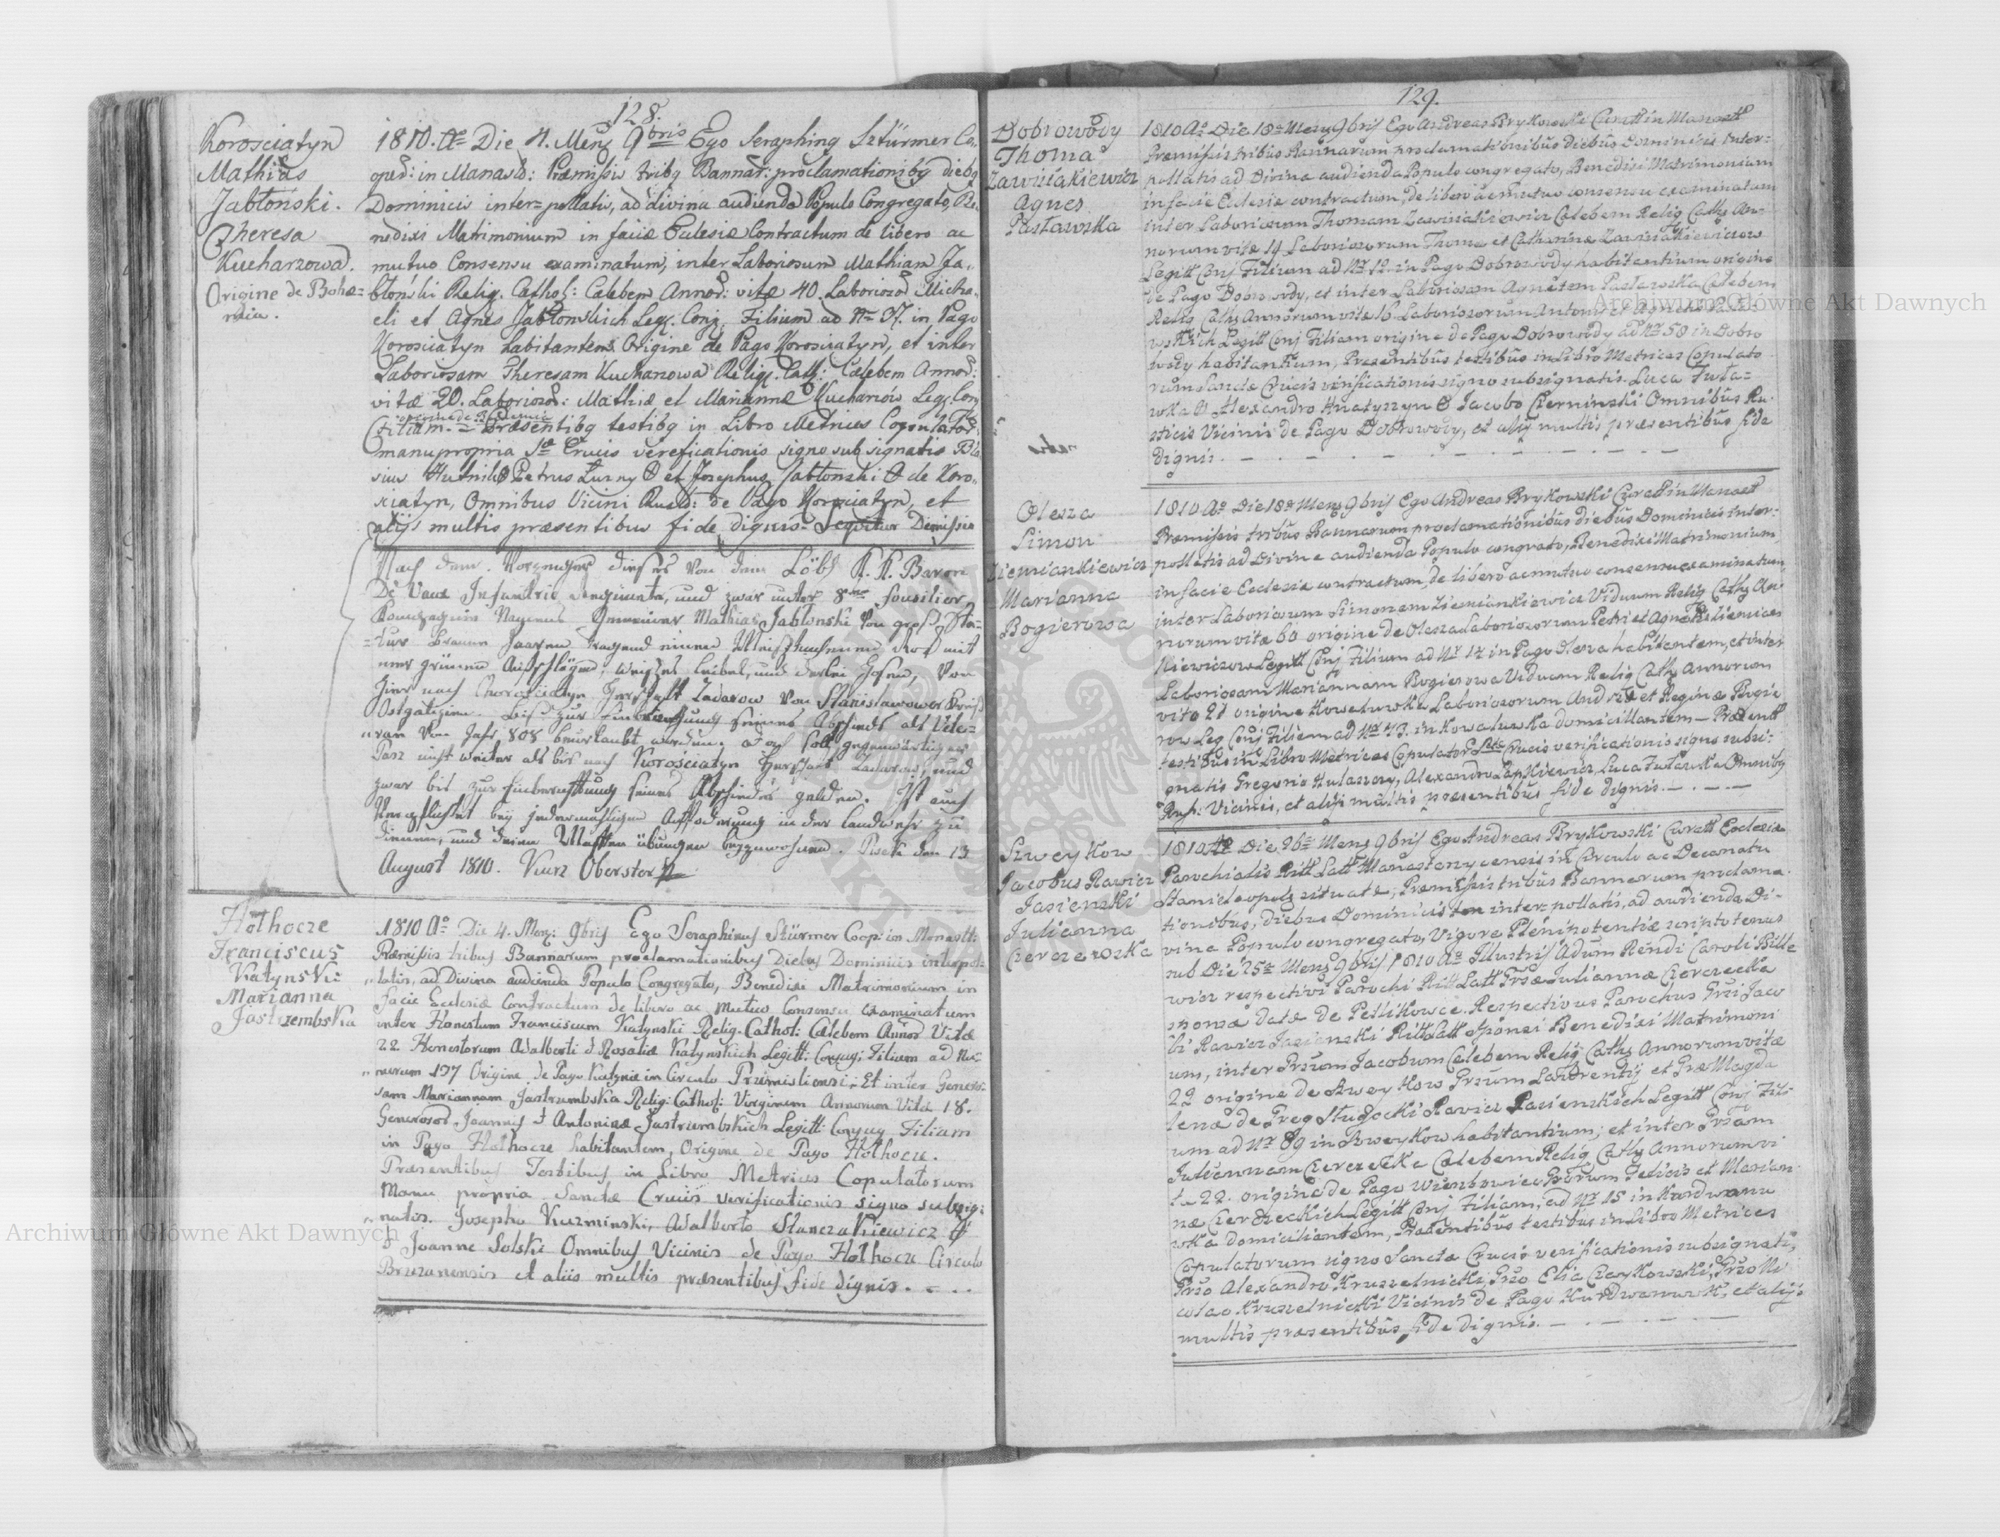 128.
Korosciatyn
Mathias
Jabłonski.
Theresa
Kucharzowa.
Origine de Bohæ-
mia.
1810. Aº Die 4. Mens 9bris Ego Seraphing Sztürmer Co,
oped: in Manast: Præmissis tribq Bannar: proclamationibq diebq
Dominicis inter-pollatis, ad divina audienda Populo Congregato, Be,
nedixi Matrimonium in facie Eclesiæ Contractum de libero ac
mutuo Consensu examinatum, inter Laboriosum Mathiam Ja,
błonski Relig. Cathol: Cælebem Annor: vitæ 40. Laborioso Micha,
eli et Agnes Jabłonskich Leg. Conj. Filium ad Nm in Pago
Korosciatyn habitantem Origine de Pago Korosciatyn, et inter
Laboriosam Theresam Kucharzowa Relig. Cath: Cælebem Annor:
vitæ 20. Laborioso: Mathiæ et Mariannæ Kucharzów Leg. Conj
origine de Bohemia
Filiam. Præsentibq testibq in Libro Metrices Copulator
manupropria Stæ Crucis verificationis signo subsignatis Bla
sius Hutnik Petrus Luzny et Josephus Jabłonski de Koro,
sciatyn, Omnibus Vicini Rust: de Pago Korosciatyn, et
alijs multis præsentibus fide dignis. Sequitur Dimissio
Nach dem Vorzeuger dieses von dem Löbl K. K. Baron
De Vaux Infantrie Regiments, und zwar unter 8ter Fousilier,
Kompagnie Namens Gemeiner Mathias Jablonski von groß Sta-
tur braunen Haaren tragend einen Weistuchenen Rock mit
grünen Aufschlägen, weißes Leibel, und derlei Hosen, von
hier nach Korosciatyn Herrschaft Zadarow von Stanislawower Kreiß
Ostgalizien bis zur Einberuffung seines Abschieds als Vete-
ran vom Jahr 808 beurlaubt worden; also soll gegenwärtiger
Pass nicht weiter als bis nach Korosciatyn Herrschaft Zadarow, und
zwar bis zur Einberuffung seines Abschiedes gelden. Ist auch
Verpflichtet bey jedermahligen Auffoderung in der Landwehr zu
dienen, und denen Waffen übungen beyzuwohnen. den 13
August 1810. Kurz Oberster
Hołhocze
Franciscus
Katynski
Marianna
Jastrzembska
1810 Aº Die 4. Mens: 9bris Ego Seraphinus Stürmer Coop: in Monast:
Præmissis tribus Bannarum proclamationibus Diebus Dominicis interpol-
latis, ad Divina audienda Populo Congregato, Benedixi Matrimonium in
facie Eclesiæ Contractum de libero ac Mutuo Consensu examinatum
inter Honestum Franciscum Katynski Relig. Cathol: Cælebem Annor Vitæ
22 Honestorum Adalberti & Rosaliæ Katynskich Legitt: Conjug: Filium ad Nu-
merum 137 Origine de Pago Katynie in Circulo Przemisliensi; Et inter Genero-
sam Mariannam Jastrzembska Relig: Cathol: Virginem Annorum Vitæ 18.
Generosor Joannis & Antoninæ Jastrzembskich Legitt: Conjug Filiam
in Pago Hołhocze habitantem, Origine de Pago Hołhocze.
Præsentibus Testibus in Libro Metrices Copulatorum
Manu propria Sanctæ Crucis verificationis signo subsig-
natis. Josepho Kuzminski, Adalberto Stanczakiewicz &
& Joanne Solski Omnibus Vicinis de Pago Hołhocze Circulo
Brzezanensis et aliis multis præsentibus fide dignis.
129.
Dobrowody
Thoma
Zawislakiewicz
Agnes
Pasławska
1810 Aº Die 18ª Mens 9bris Ego Andreas Brykowski Curatt in Manast
Præmissis tribus Bannarum proclamationibus diebus Dominicis Inter-
pollatis ad Divina audienda Populo congregato, Benedixi Matrimonium
in facie Eclesiæ contractum, de libero ac mutuo consensu examinatum
inter Laboriosum Thomam Zawislakiewicz Cælebem Relig Cath An-
norum vitæ 19 Laboriosorum Thoma et Catharinæ Zawislakiewiczow
Legitt Conj Filium ad Nr 12 in Pago Dobrowody habitantium origine
de Pago Dobrowody, et inter Laboriosam Agnetem Pasławska Cælebem
Relig Cath Annorum vitæ 15 Laboriosorum Antoni et Agnetæ Pasła-
wskich Legitt Conj Filiam origine de Pago Dobrowody ad Nr 58 in Dobro
wody habitantium, Præsentibus testibus in Libro Metrices Copulato
rum Sanctæ Crucis verificationis signo subsignatis. Luca Tuła-
wka Alexandro Hnatyszyn Jacobo Czerninski Omnibus Ru-
sticis Vicinis de Pago Dobrowody, et alijs multis præsentibus fide
dignis.
Olesza
Simon
Ziemiankiewicz
Marianna
Bogierowa
1810 Aº Die 18ª Mens 9bris Ego Andreas Brykowski Curatt in Manast
Præmissis tribus Bannarum proclamationibus diebus Dominicis Inter-
pollatis ad Divina audienda Populo congrato, Benedixi Matrimonium,
in facie Eclesiæ contractum, de libero ac mutuo consensu examinatum,
inter Laboriosum Simonem Ziemiankiewicz Viduum Relig Cath An-
norum vitæ 60 origine de Olesza Laboriosorum Petri et Agnetis Ziemian
kiewiczow Legitt Conj Filium ad Nr 12 in Pago Olesza habitantem, et inter
Laboriosam Mariannam Bogierowa Viduam Relig Cath Annorum
vitæ 21 origine Kowaluwka Laboriosorum Andreæ et Reginæ Bogie
row Leg Conj Filiam ad Nr 43. in Kowaluwka domicillantem — Præsentt
testibus in Libro Metrices Copulator Stæ Crucis verificationis signo subsi-
gnatis Gregorio Hulassny, Alexandro Lapkiewicz, Luca Tuławka Omnibq
Rust: Vicinis, et alijs multis præsentibus fide dignis.
Szweykow
Jacobus Rawicz
Jasienski
Julianna
Czerczewska
1810 Aº Die 26ª Mens 9bris Ego Andreas Brykowski Curatt Ecclesiæ
Parochialis Ritt Latt Monasterzycensis in Circulo ac Decanatu
Stanislopols situatæ, Præmissis tribus Bannorum proclama-
tionibus, diebus Dominicis inter-pollatis, ad audienda Di-
vina Populo congregato, Vigore Plenipotentiæ scripto tenus
sub Die 25ª Mens 9bris 1810 Aº Illustris Adum Rendi Caroli Bille
wicz respectivi Parochi Ritt Latt Grsæ Juliannæ Czerczecka
sponsæ datæ de Petlikowce. Respectivus Parochus Grsi Jaco
bi Rawicz Jasienski Ritt Latt Sponsi Benedixi Matrimoni
um, inter Grsum Jacobum Cælebem Relig Cath Annorum vitæ
22 origine de Szweykow Grsum Laurentij et Græ Magda
lenæ de Greg Słuzocki Rawicz Jasienskich Legitt Conj Fili-
um ad Nr 89 in Szweykow habitantium, et inter Grsam
Juliannam Czerczecka Cælebem Relig Cath Annorum vi
tæ 22. origine de Pago Wierzbowiec Grsorum Felicis et Marian-
næ Czerczeckich Legitt Conj Filiam, ad Nr 15 in Kurdwanu
wka domiciliantem, Præsentibus testibus in Libro Metrices
Copulatorum signo Sanctæ Crucis verificationis subsignatis
Grso Alexandro Kruszelnicki, Grso Elia Czaykowski, Grso Ni
colao Kruszelnicki Vicinis de Pago Kurdwanuwk, et alijs
multis præsentibus fide dignis.
Archiwum Główne Akt Dawnych
Archiwum Główne Akt Dawnych